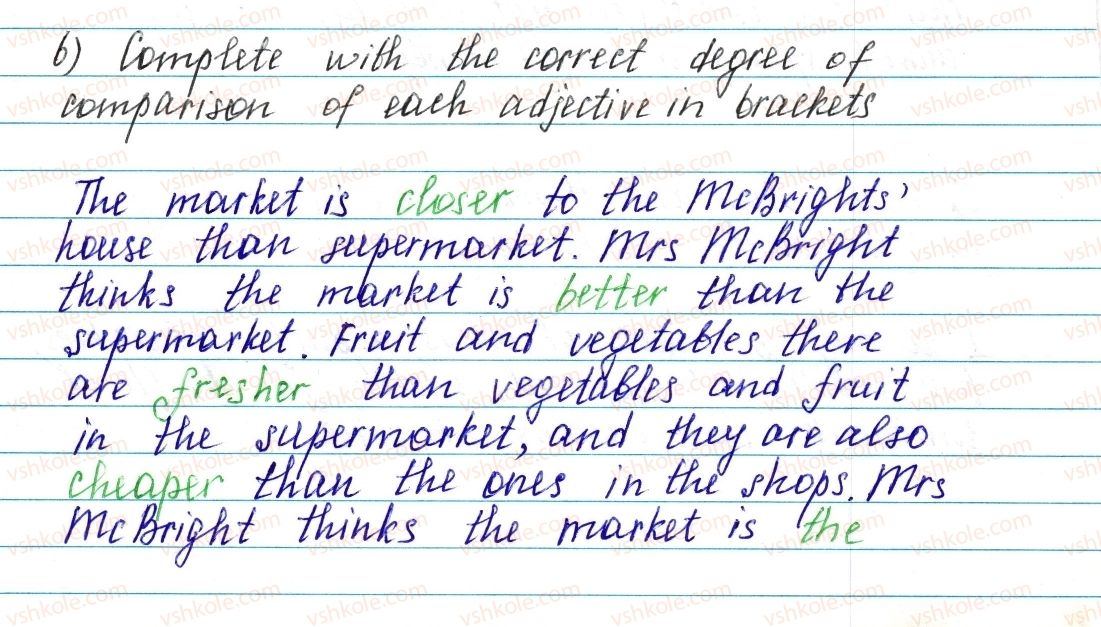 б) Complete with the correct degree of
comparison of each adjective in brackets
The market is closer to the McBrights'
house than supermarket. Mrs McBright
thinks the market is better than the
supermarket. Fruit and vegetables there
are fresher than vegetables and fruit
in the supermarket, and they are also
cheaper than the ones in the shops. Mrs
McBright thinks the market is the